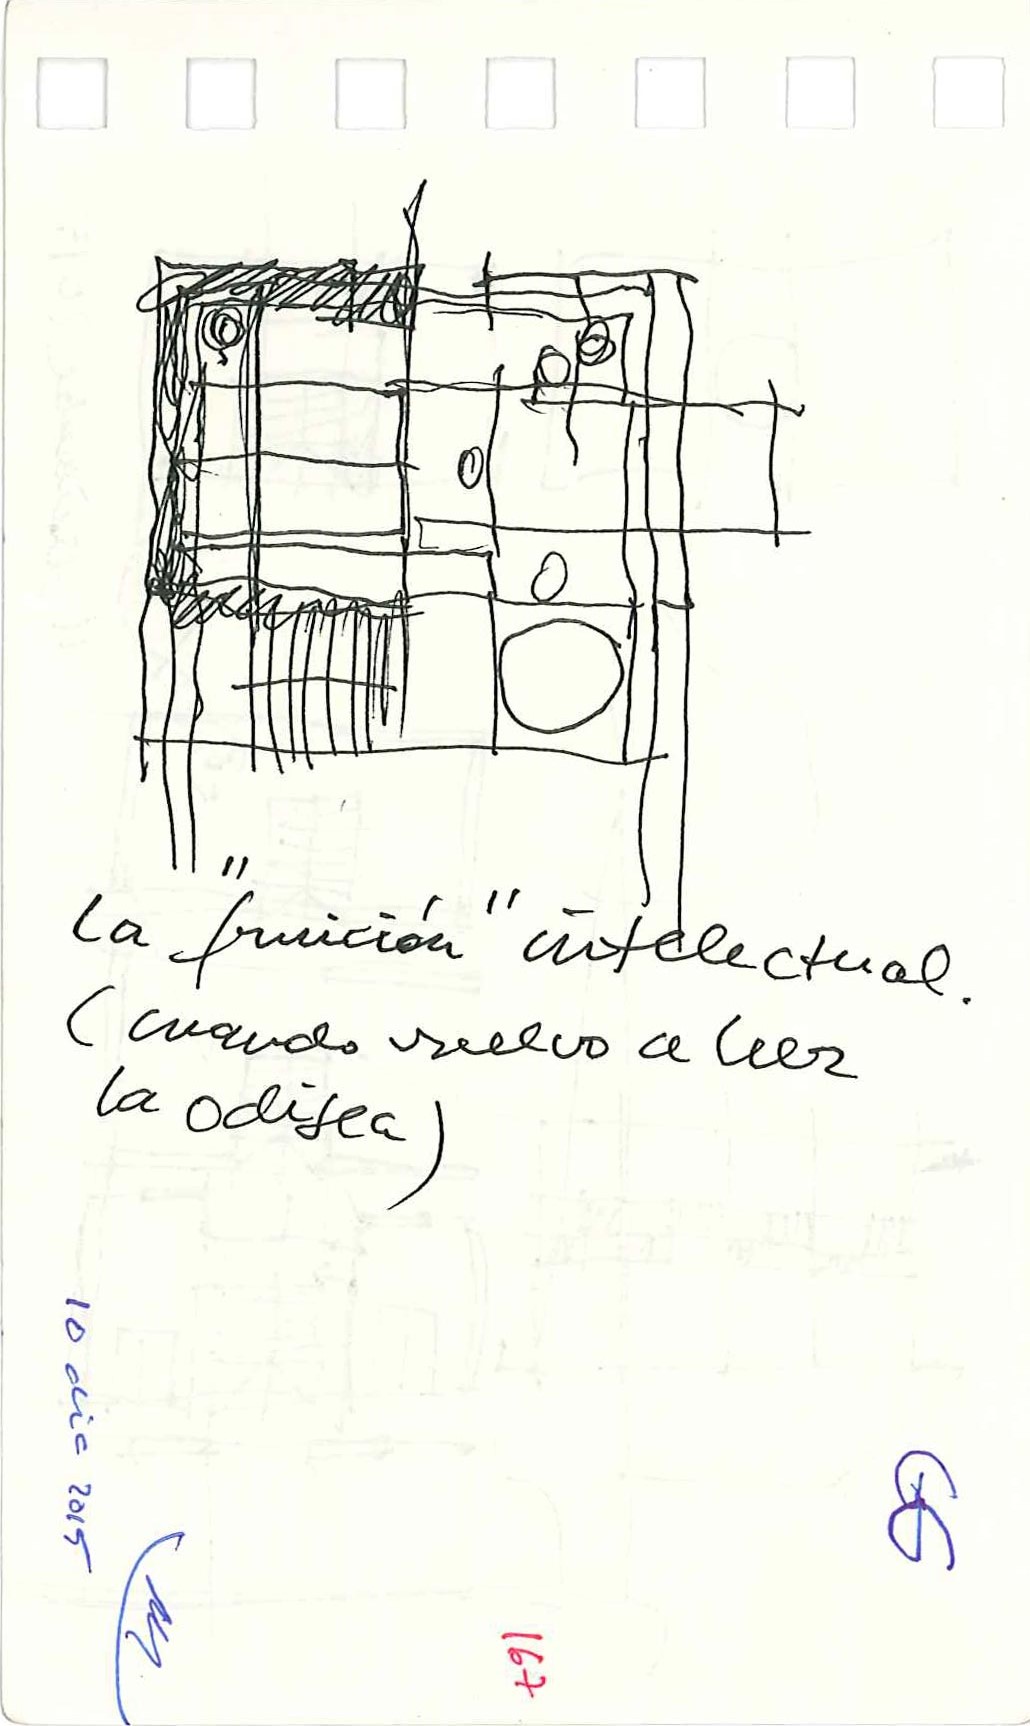 La "fruición" intelectual.
(cuando vuelvo a leer
la odisea)
10 dic 2015
167